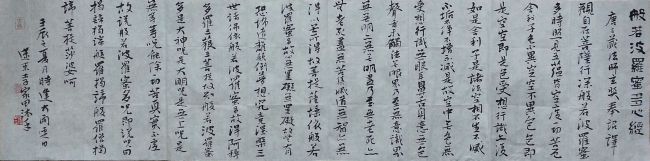 般若波羅蜜多心經
唐三藏法師玄奘奉詔譯
觀自在菩薩行深般若波羅蜜
多時照見五蘊皆空度一切苦厄
舍利子色不異空空不異色色即
是空空即是色受想行識亦復
如是舍利子是諸法空相不生不滅
不垢不淨不增不減是故空中無色無
受想行識無眼耳鼻舌身意無色
聲香味觸法無眼界乃至無意識界
無無明亦無無明盡乃至無老死亦
無老死盡無苦集滅道無智亦無
得以無所得故菩提薩埵依般若
波羅蜜多故心無罣礙無罣礙故無有
恐怖遠離顛倒夢想究竟涅槃三
世諸佛依般若波羅蜜多故得阿耨
多羅三藐三菩提故知般若波羅蜜
多是大神咒是大明咒是無上咒是
無等等咒能除一切苦真實不虛
故說般若波羅蜜多咒即說咒曰
揭諦揭諦波羅揭諦波羅僧揭
諦菩提莎婆呵